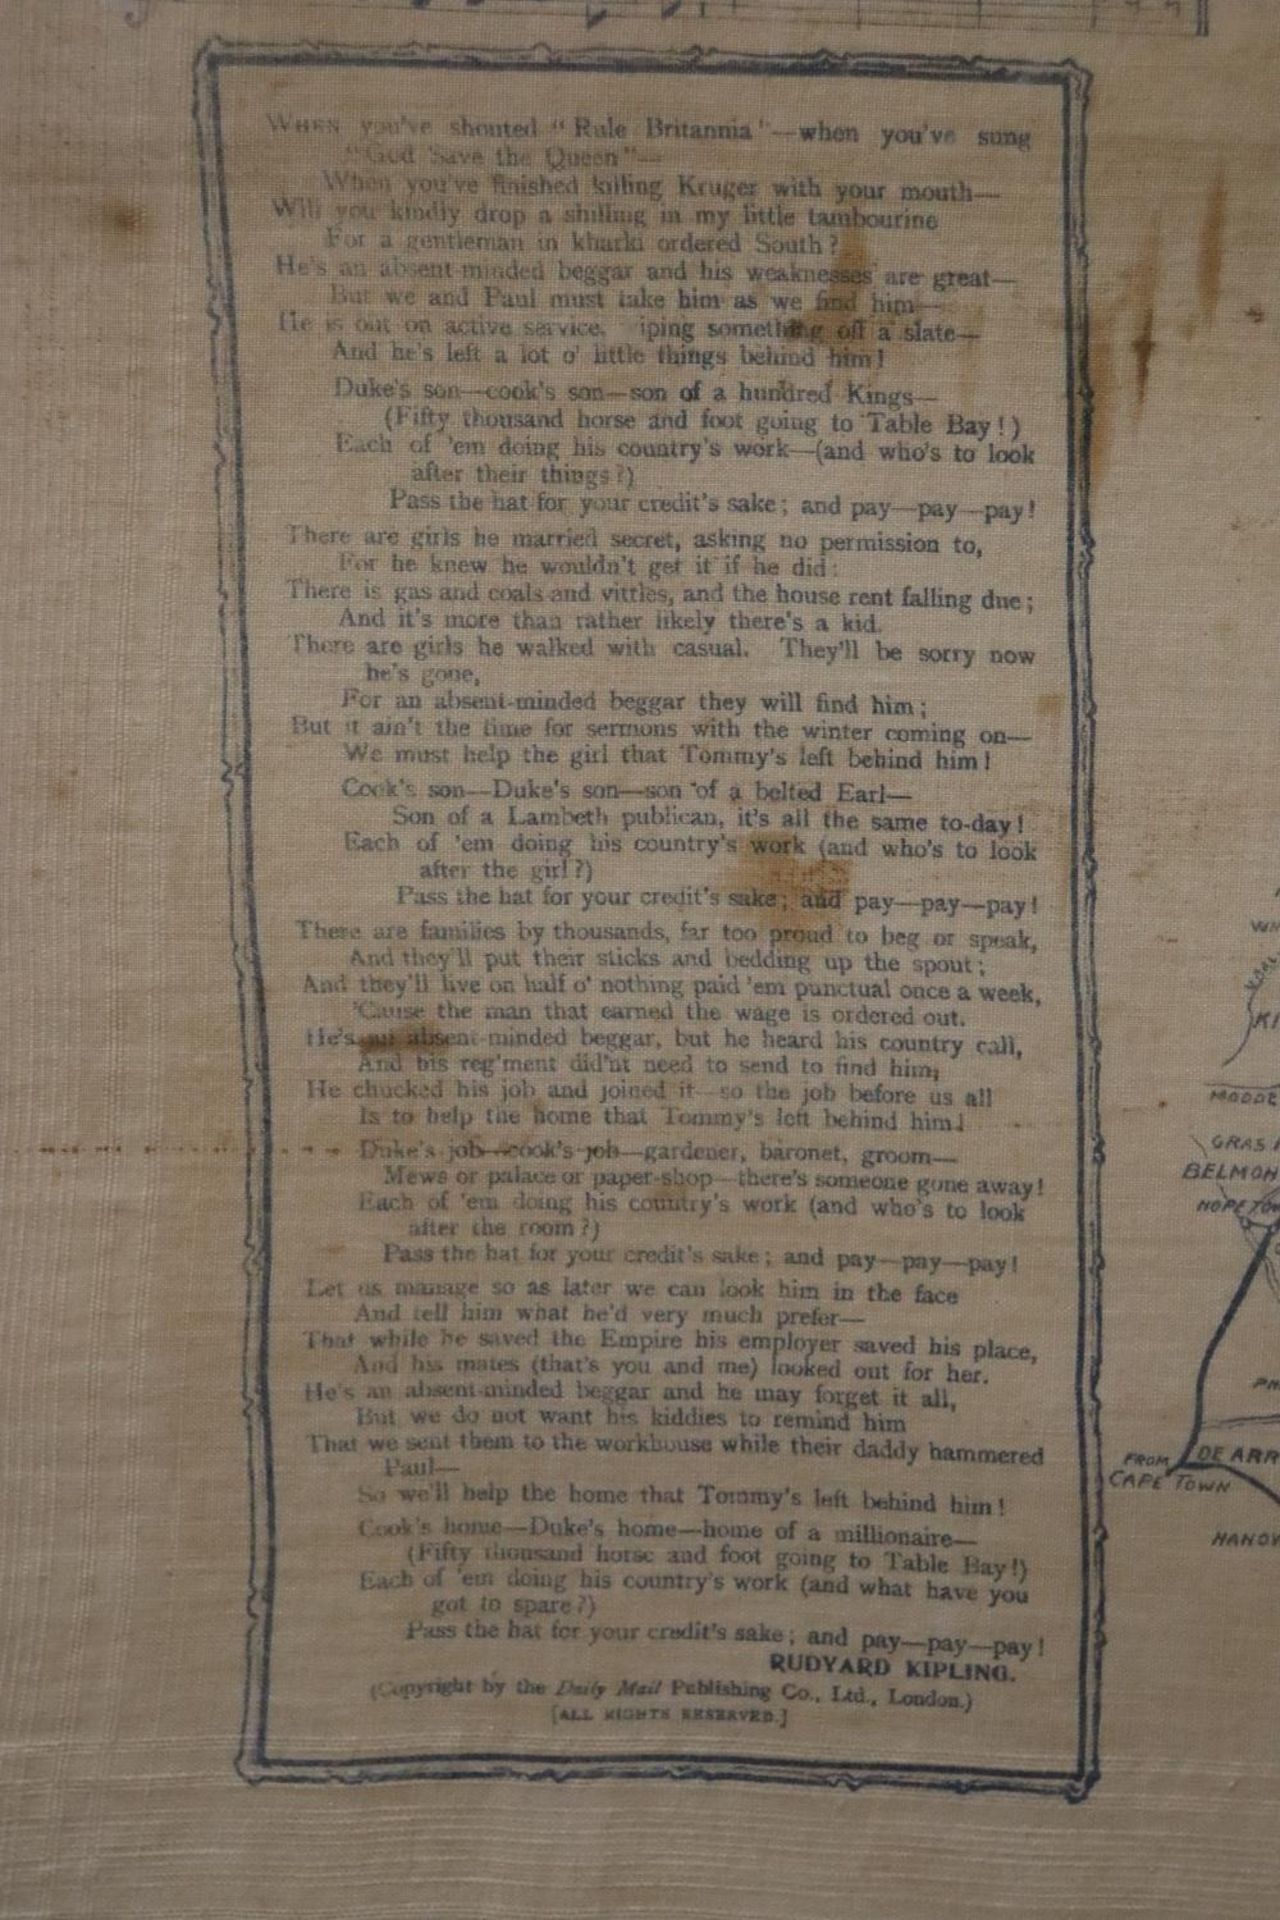 WHEN you've shouted "Rule Britannia"—when you've sung
"God Save the Queen"—
When you've finished killing Kruger with your mouth—
Will you kindly drop a shilling in my little tambourine
For a gentleman in kharki ordered South?
He's an absent-minded beggar and his weaknesses are great—
But we and Paul must take him as we find him—
He is out on active service, iping something off a slate—
And he's left a lot o' little things behind him!
Duke's son—cook's son—son of a hundred Kings—
(Fifty thousand horse and foot going to Table Bay!)
Each of 'em doing his country's work—(and who's to look
after their things?)
Pass the hat for your credit's sake; and pay—pay—pay!
There are girls he married secret, asking no permission to,
For he knew he wouldn't get it if he did:
There is gas and coals and vittles, and the house rent falling due;
And it's more than rather likely there's a kid.
There are girls he walked with casual. They'll be sorry now
he's gone,
For an absent-minded beggar they will find him;
But it ain't the time for sermons with the winter coming on—
We must help the girl that Tommy's left behind him!
Cook's son—Duke's son—son of a belted Earl—
Son of a Lambeth publican, it's all the same to-day!
Each of 'em doing his country's work (and who's to look
after the girl?)
Pass the hat for your credit's sake; and pay—pay—pay!
There are families by thousands, far too proud to beg or speak,
And they'll put their sticks and bedding up the spout;
And they'll live on half o' nothing paid 'em punctual once a week,
'Cause the man that earned the wage is ordered out.
He's an absent-minded beggar, but he heard his country call,
And his reg'ment did'nt need to send to find him;
He chucked his job and joined it—so the job before us all
Is to help the home that Tommy's left behind him!
Duke's job—cook's job—gardener, baronet, groom—
Mews or palace or paper-shop—there's someone gone away!
Each of 'em doing his country's work (and who's to look
after the room?)
Pass the hat for your credit's sake; and pay—pay—pay!
Let us manage so as later we can look him in the face
And tell him what he'd very much prefer—
That while he saved the Empire his employer saved his place,
And his mates (that's you and me) looked out for her.
He's an absent-minded beggar and he may forget it all,
But we do not want his kiddies to remind him
That we sent them to the workhouse while their daddy hammered
Paul—
So we'll help the home that Tommy's left behind him!
Cook's home—Duke's home—home of a millionaire—
(Fifty thousand horse and foot going to Table Bay!)
Each of 'em doing his country's work (and what have you
got to spare?)
Pass the hat for your credit's sake; and pay—pay—pay!
RUDYARD KIPLING.
(Copyright by the Daily Mail Publishing Co., Ltd., London.)
[ALL RIGHTS RESERVED.]
MODDE
GRAS
BELMON
HOPETOW
FROM
CAPE TOWN
DE ARR
HANOV